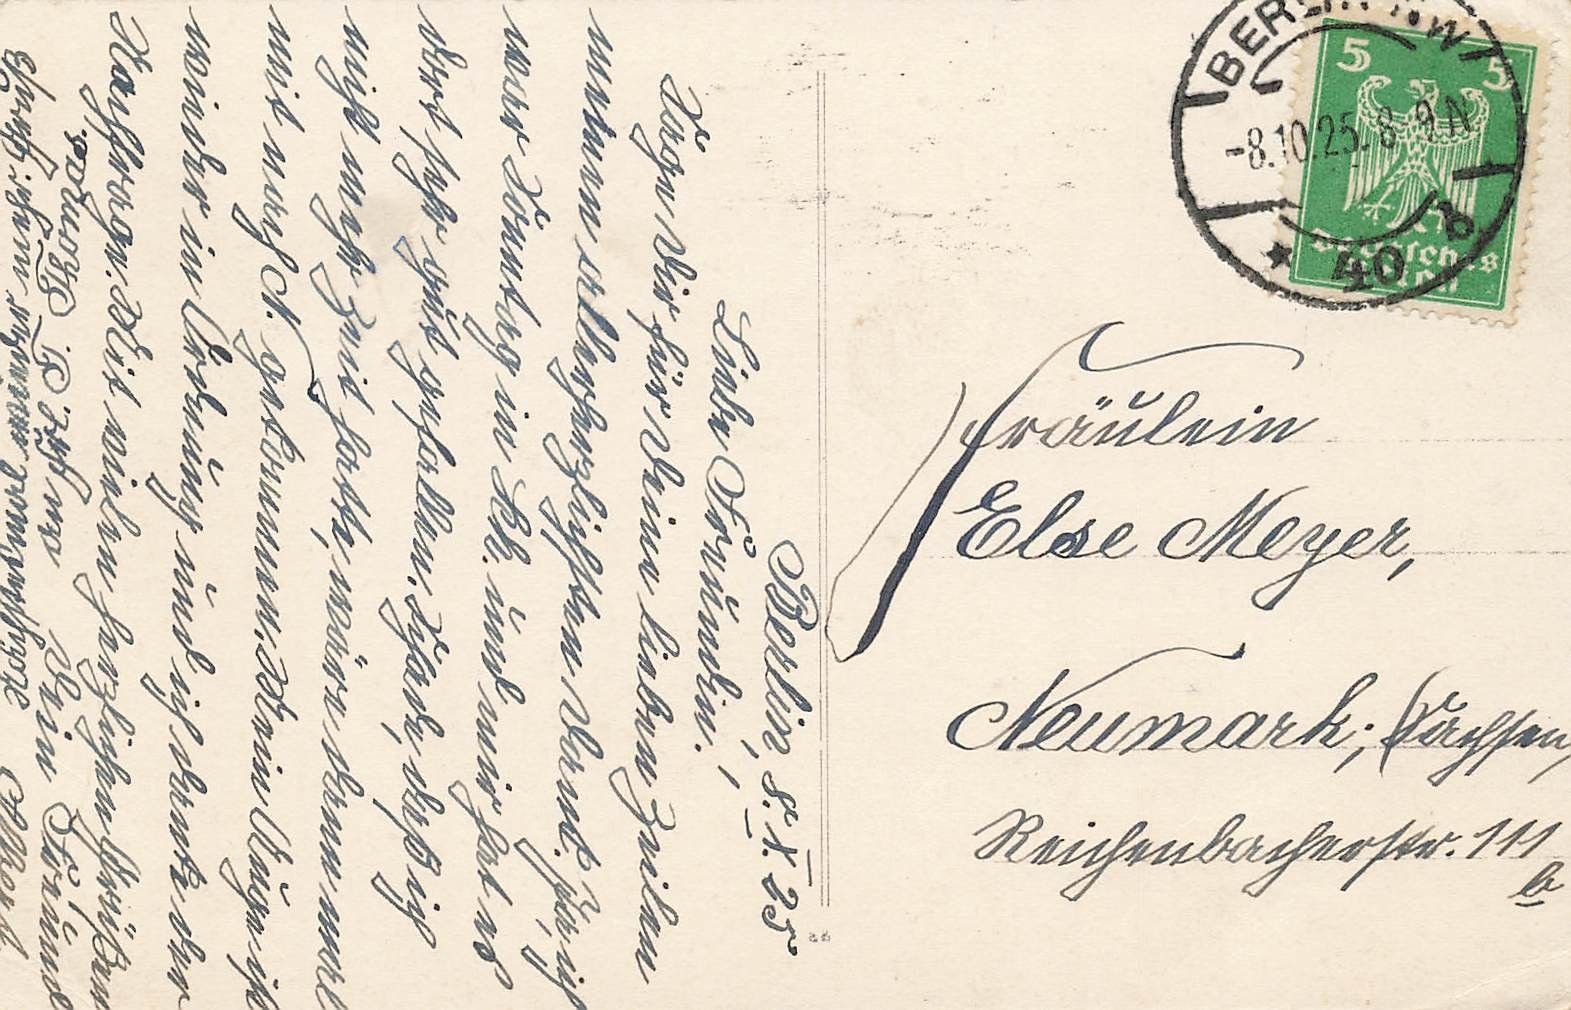 Berlin, 8.X.25
Liebe Freundin!
Sage Dir für Deine lieben Zeilen
meinen allerherzlichsten Dank. Ja ich
war Sonntag in Rb. und mir hat es
dort sehr gut gefallen. Schade, daß ich
nicht mehr Zeit hatte, wäre dann mal
mit nach N. gekommen. Mein Auge ist
wieder in Ordnung und ich danke der
Nachfrage. Mit vielen herzlichen Grüßen
Dein Freund
BERLIN NW
-8.10.25. 8-9 N
* 40 b
5 5
Deutsches
Reich
Fräulein
Else Meyer,
Neumark, (Sachsen)
Reichenbacherstr. 111
b